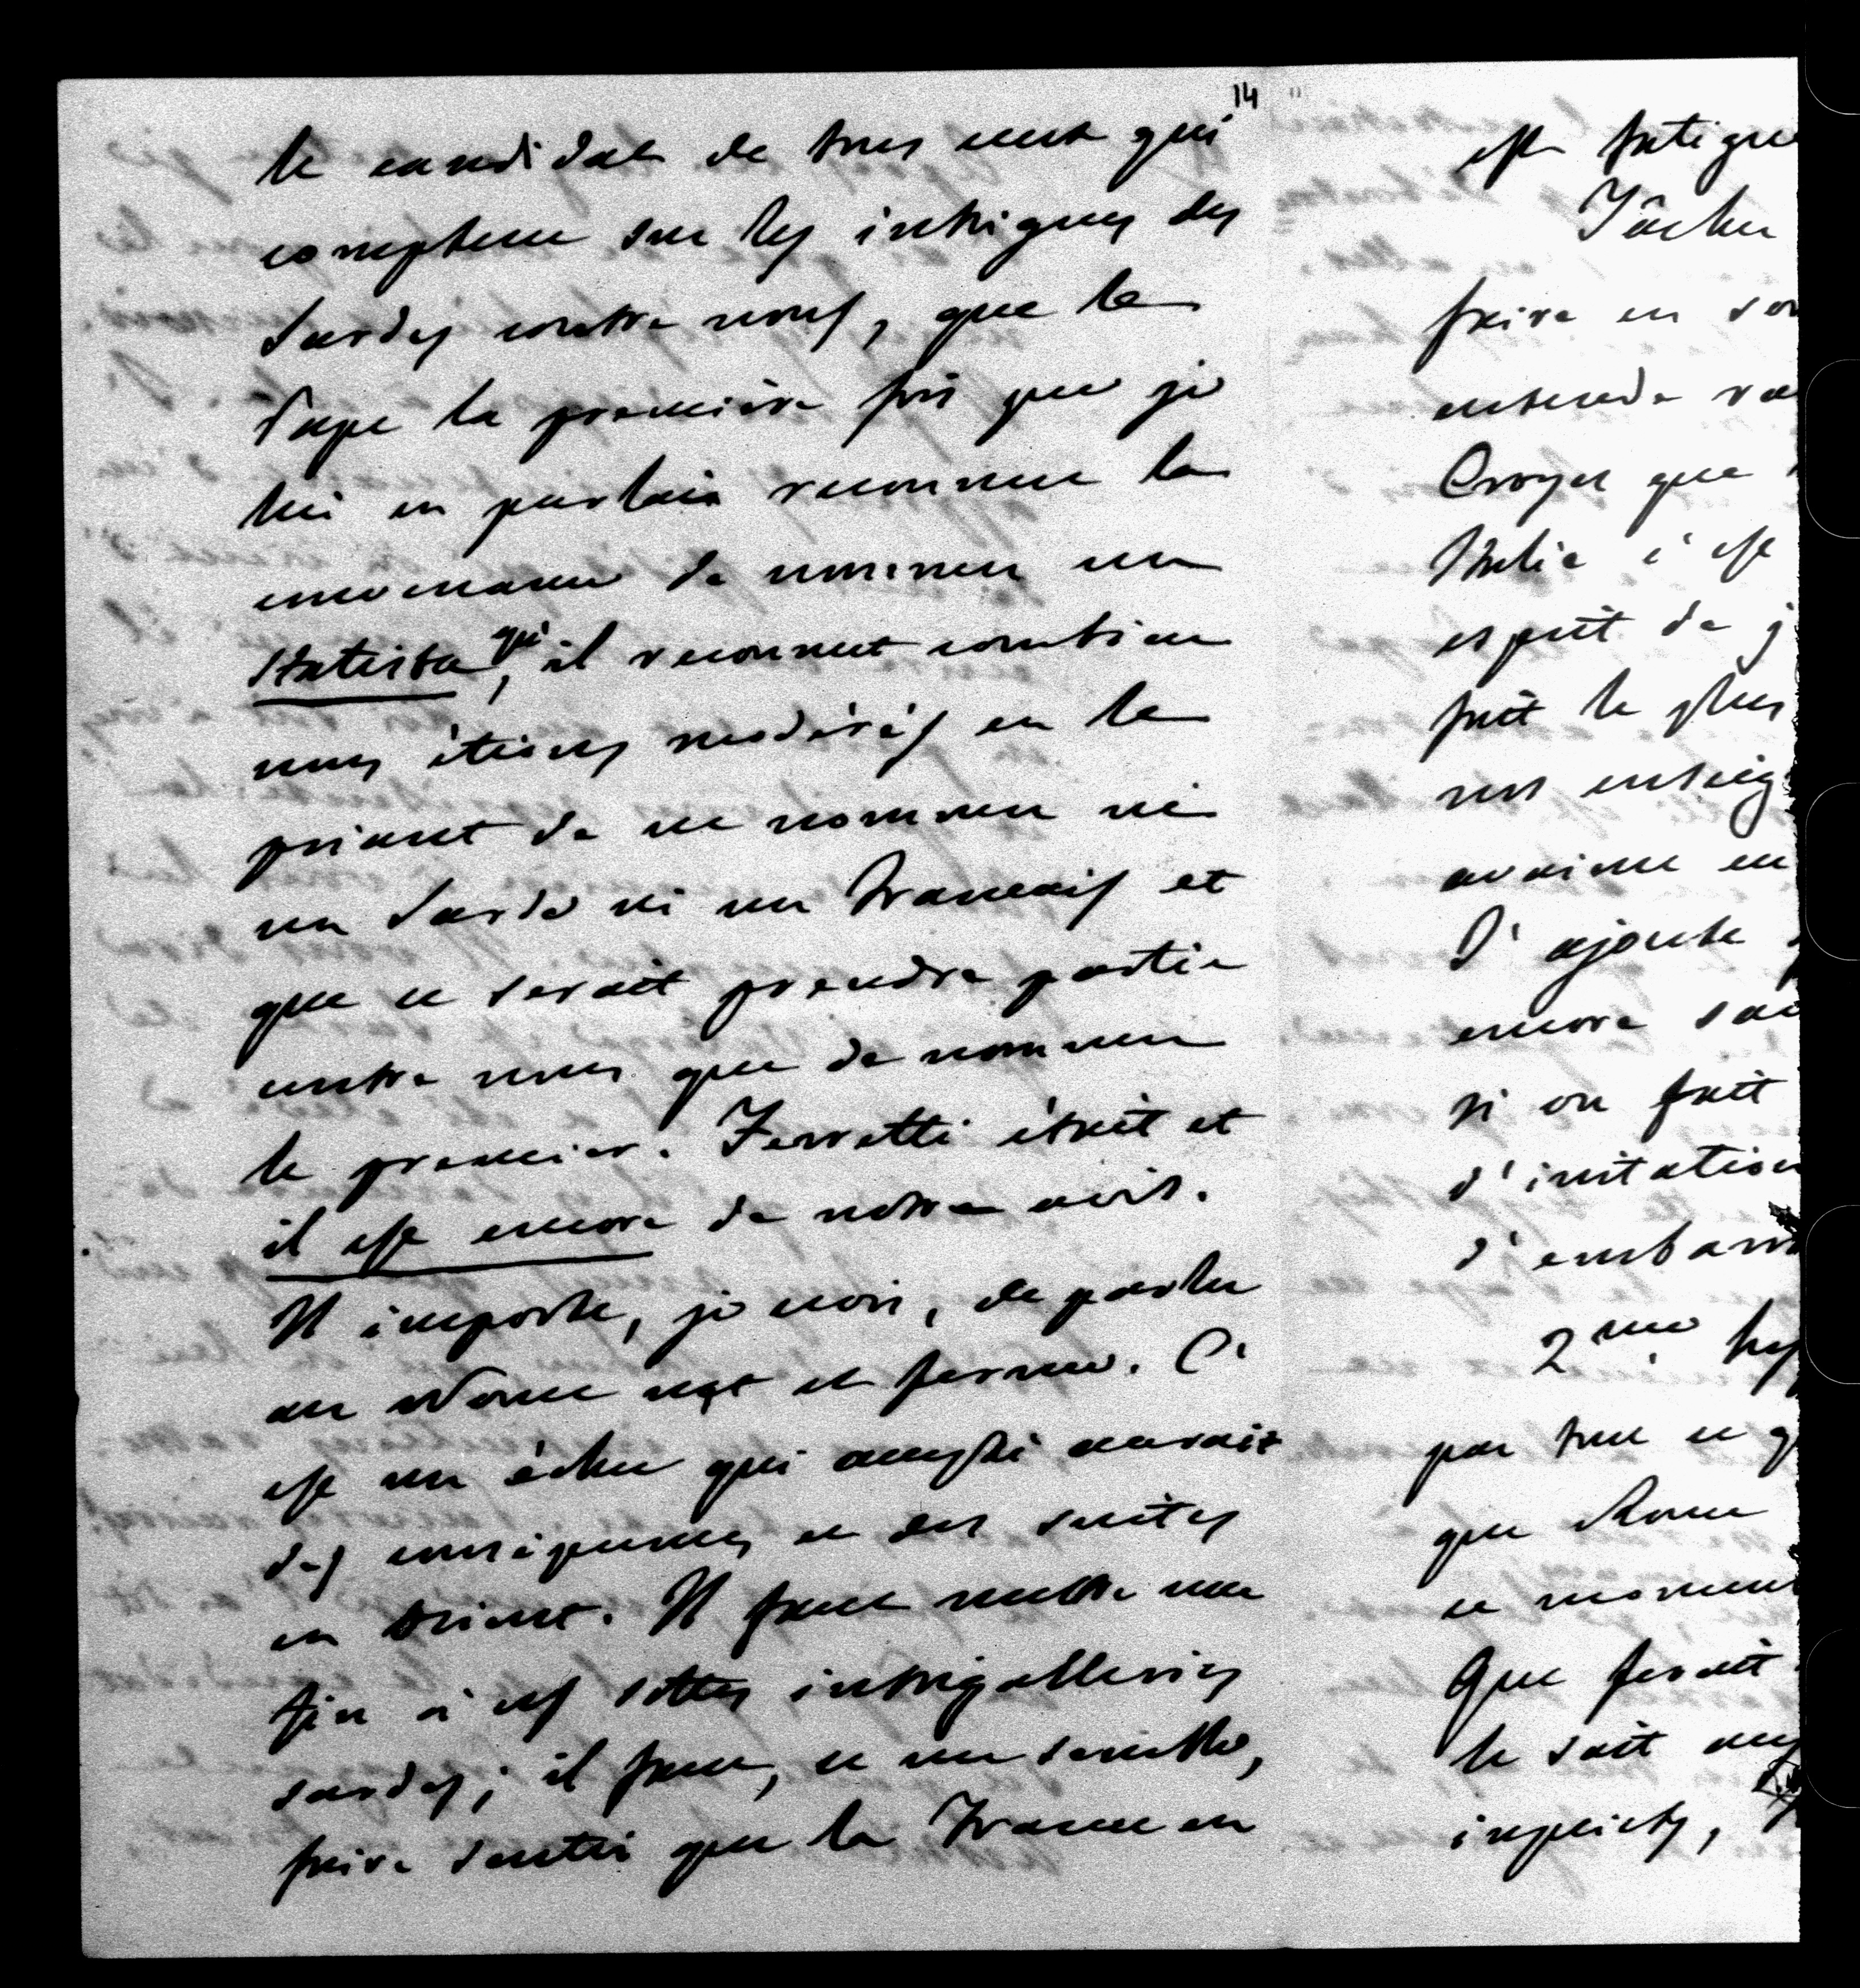 14
le candidat de tous ceux qui
comptent sur les intrigues des
Sardes contre nous, que le
Pape la première fois que je
lui en parlais reconnut la
convenance de nommer un
statista, qu'il reconnut combien
nous étions modérés en le
priant de ne nommer ni
un Sarde ni un Francais et
que ce serait prendre partie
contre nous que de nommer
le premier. Ferretti était et
il est encore de notre avis.
Il importe, je crois, de parler
au Nonce net et ferme. C'
est un échec qui aussi aurait
des conséquences et des suites
en Orient. Il faut mettre une
fin à ces sottes intrigalleries
sardes; il faut, ce me semble,
faire sentir que la France en
est fatigué
Tâcher
faire en so
entende ra
Croyez que
Italie c'est
esprit de j
fait le plus
nos enseig
avaient eu
J'ajoute
encore sa
si on fait
d'irritation
d'embarra
2me hy
par tout ce q
que Rome
ce moment
Que ferait
le sait
inquiets,